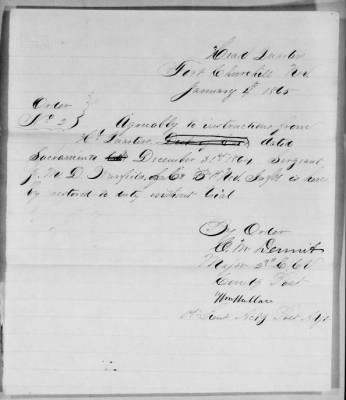 Head Quarters
Fort Churchill
January 4th 1865
Order
No 2
Agreeably to instructions from
Hd Quarters dated
Sacramento December 31st 1864 Sergeant
J. M. D. of Co Inft is here
by restored to duty without trial
By Order
C. McDermit
Major 2d C. C. V.
Comdg Post
Wm Wallace
1st Lieut Post Adjt